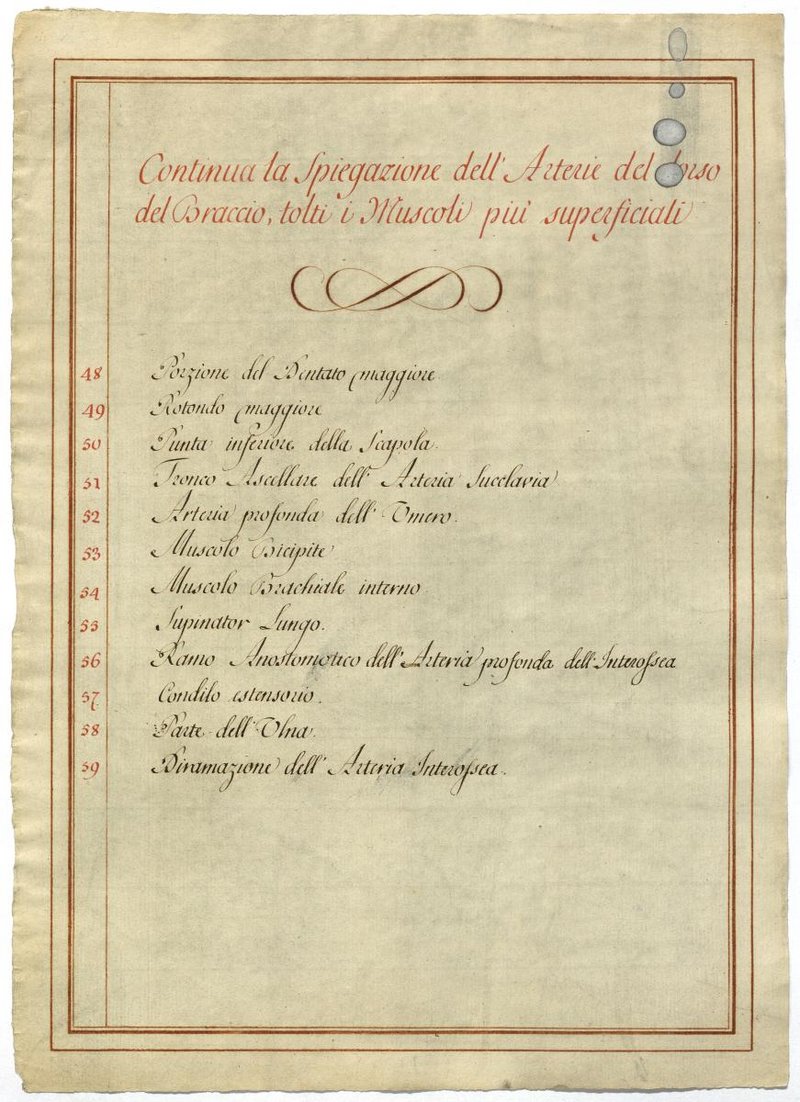 Continua la Spiegazione dell' Arterie del dorso
del Braccio, tolti i Muscoli più superficiali
48 Porzione del Dentato maggiore
49 Rotondo maggiore
50 Punta inferiore della Scapola.
51 Tronco Ascellare dell' Arteria Succlavia
52 Arteria profonda dell' Omero.
53 Muscolo Bicipite
54 Muscolo Brachiale interno
55 Supinator Lungo.
56 Ramo Anostomotico dell' Arteria profonda dell' Interossea
57 Condilo estensorio.
58 Parte dell' Ulna.
59 Diramazione dell' Arteria Interossea.